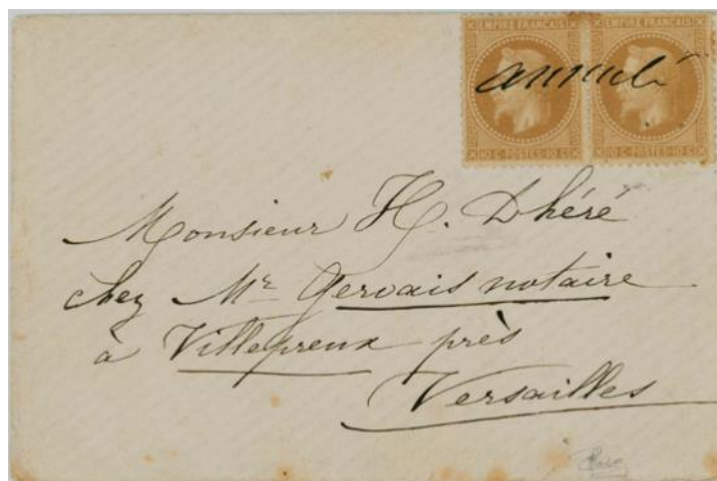 EMPIRE FRANÇAIS EMPIRE FRANÇAIS
annulé
10 C-POSTES-10 C. 10 C-POSTES-10 C.
Monsieur H. Dhéré
chez Mr Gervais notaire
à Villepreux près
Versailles